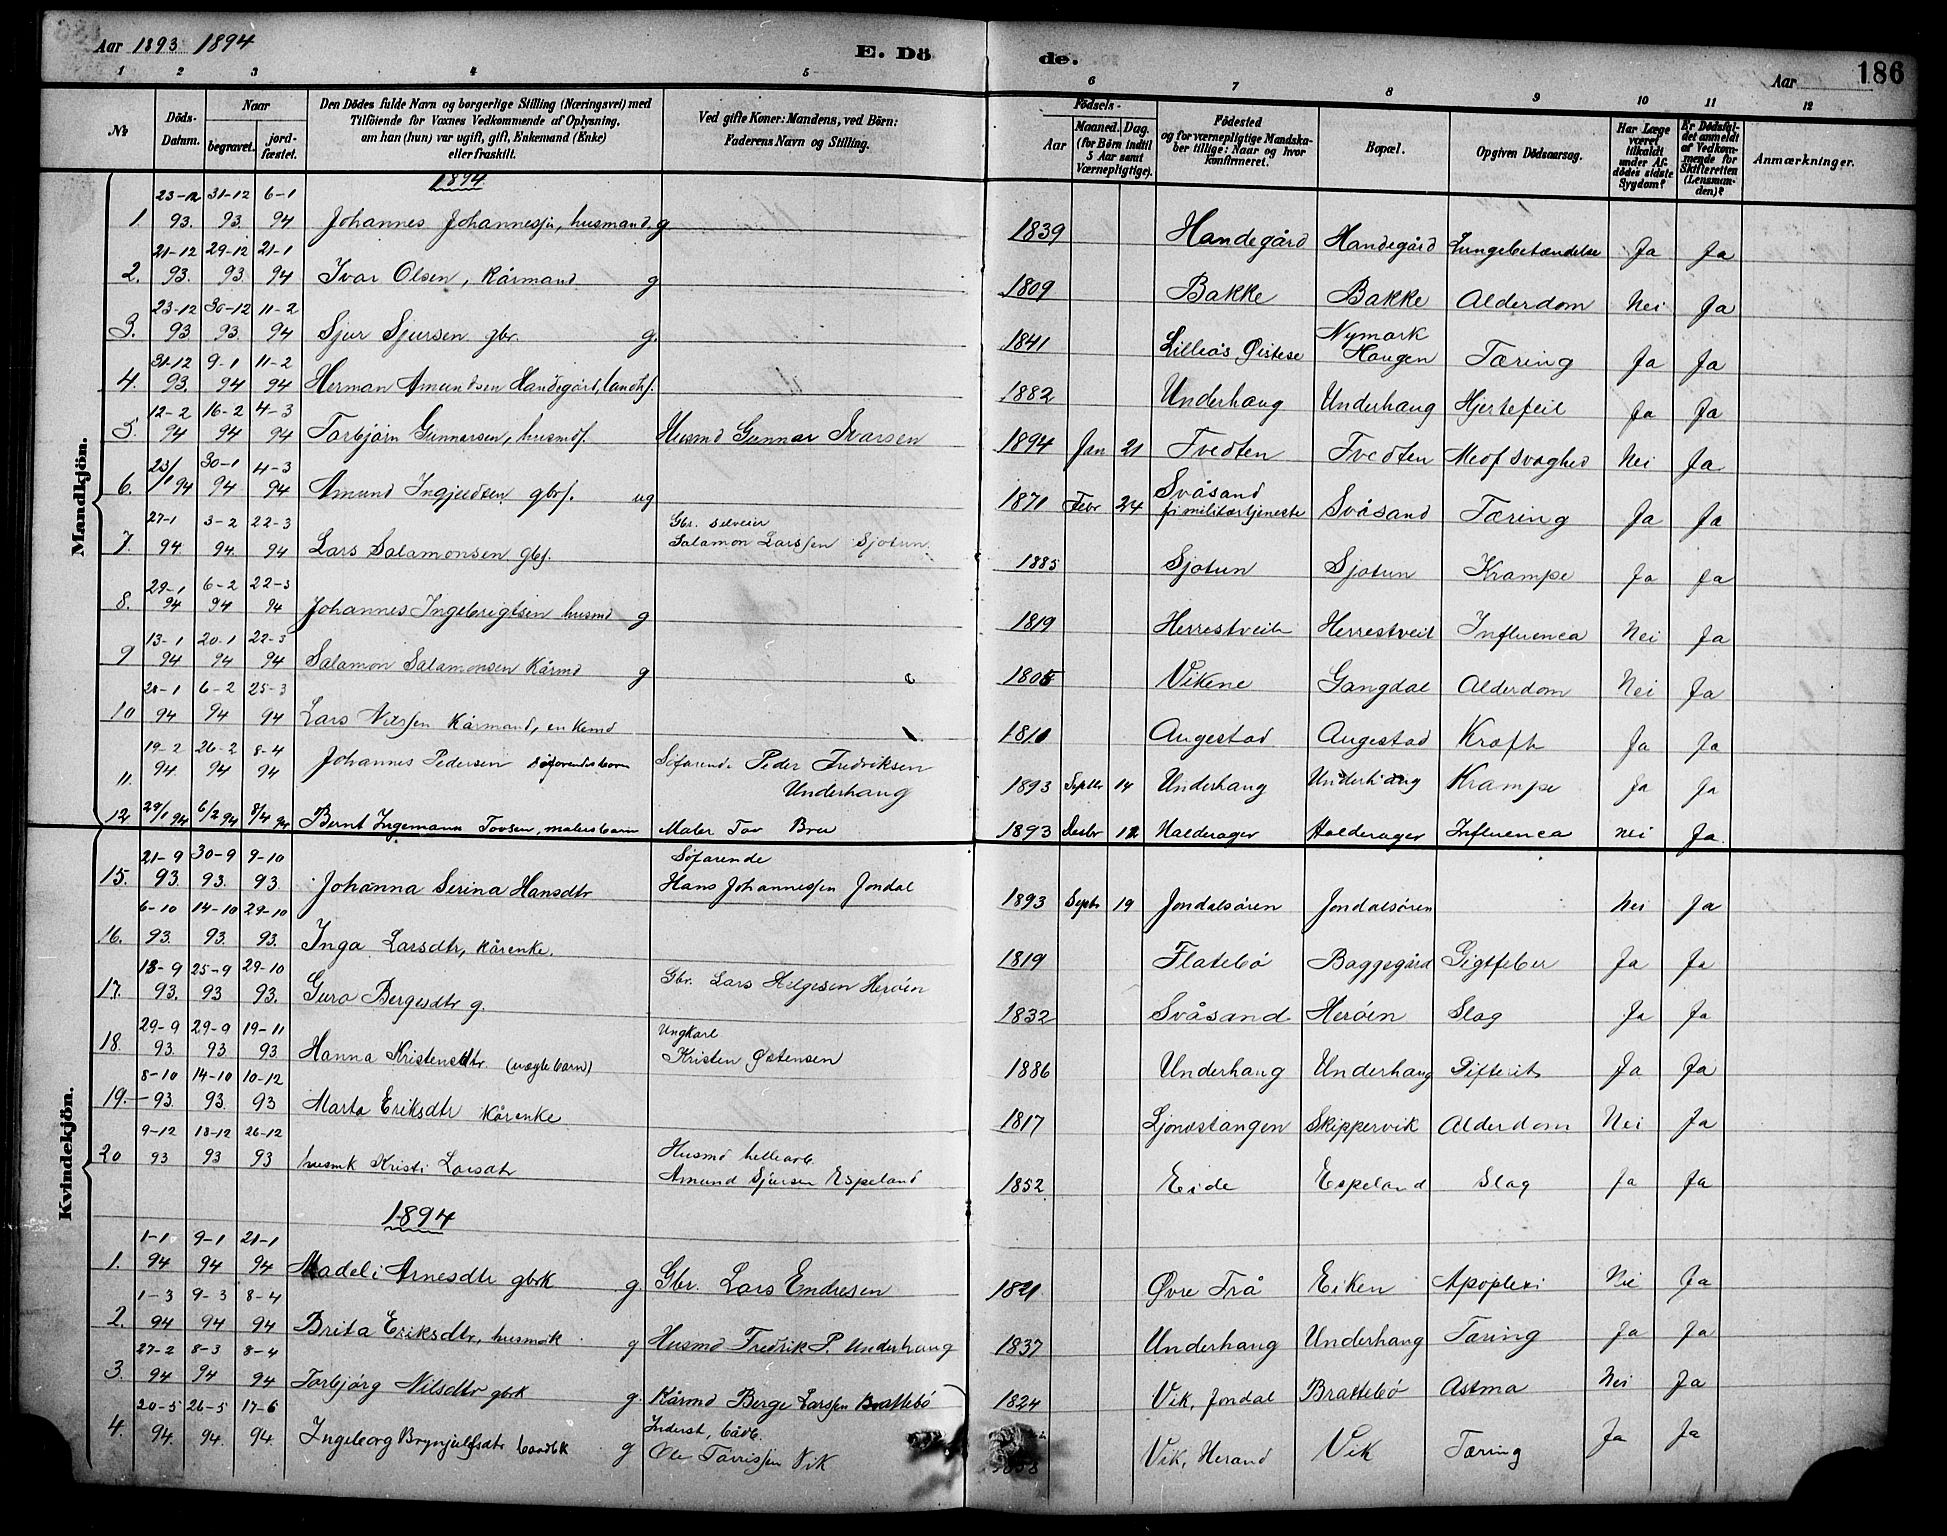 Aar 1893 1894
E. Dö
de.
Aar
186
1 2 3 4 5 6 7 8 9 10 11 12
No
Döds-Datum.
Naar
begravet.
jordfæstet.
Den Dödes fulde Navn og borgerlige Stilling (Næringsvei) med
Tilföiende for Voxnes Vedkommende af Oplysning,
om han (hun) var ugift, gift, Enkemand (Enke)
eller fraskilt.
Ved gifte Koner: Mandens, ved Börn:
Faderens Navn og Stilling.
Födsels-
Aar
Maaned. Dag.
(for Börn indtil
5 Aar samt
Værnepligtige).
Födested
og for værnepligtige Mandska-
ber tillige: Naar og hvor
konfirmeret.
Bopæl.
Opgiven Dödsaarsag.
Har Læge
været
tilkaldt
under Af-
dödes sidste
Sygdom?
Er Dödsfal-
det anmeldt
af Vedkom-
mende for
Skifteretten
(Lensman-
den)?
Anmærkninger.
Mandkjön.
1894
1. 23-12 93. 31-12 93. 6-1 94 Johannes Johannesen, husmand g 1839 Handegård Handegård Lungebetændelse Ja Ja
2. 21-12 93. 29-12 93. 21-1 94 Ivar Olsen, Kårmand g 1809 Bakke Bakke Alderdom Nei Ja
3. 23-12 93 30-12 93. 11-2 94 Sjur Sjursen gbr. g. 1841 Lilleås Øistese Nymark Haugen Tæring Ja Ja
4. 31-12 93. 9-1 94 11-2 94 Herman Amundsen Handegård, 1882 Underhaug Underhaug Hjertefeil Ja Ja
5. 12-2 94 16-2 94 4-3 94 Torbjörn Gunnarsen, husmdf. Husmd Gunnar Ivarsen 1894 Jan 21 Tvedten Tvedten Medf svaghed Nei Ja
6. 23/1 94 30-1 94 4-3 94 Amund Ingjeldsen gbrf. ug 1871 Febr 24 Svåsand militærtjeneste Svåsand Tæring Ja Ja
7. 27-1 94 3-2 94. 22-3 94 Lars Salamonsen gbf. Gbr. selveier Salamon Larssen Sjotun. 1885 Sjotun Sjotun Krampe Ja Ja
8. 29-1 94 6-2 94 22-3 94 Johannes Ingebrigtsen husmd g 1819 Herrestveit Herrestveit Influenca Nei Ja
9 13-1 94 20-1 94 22-3 94 Salamon Salamonsen Kårmd g 1805 Vikene Gangdal Alderdom Nei Ja
10 20-1 94 6-2 94 25-3 94 Lars Nilssen Kårmand, enkemd 1810 Augestad Augestad Kræft Ja Ja
11. 19-2 94. 26-2 94 8-4 94 Johannes Pedersen söfarendebarn Söfarende Peder Fredriksen Underhaug 1893 Septbr 14 Underhaug Underhaug Krampe Ja Ja
12 29/1 94 6/2 94 8/4 94 Bernt Ingemann Tovsen, malersbarn Maler Tov Breu 1893 Desbr 12 Halderager Halderager Influenca Nei Ja.
Kvindekjön.
15. 21-9 93 30-9 93. 9-10 93. Johanna Serina Hansdtr Söfarende Hans Johannessen Jondal 1893 Septbr 19 Jondalsören Jondalsören Nei Ja
16. 6-10 93. 14-10 93. 29-10 93. Inga Larsdtr, kårenke. 1819 Flatebö Baggegård Gigtfeber Ja Ja
17. 18-9 93. 25-9 93 29-10 93. Guro Bergesdtr g. Gbr. Lars Helgesen Heröen 1832 Svåsand Heröen Slag Ja Ja
18. 29-9 93. 29-9 93 19-11 93 Hanna Kristensdtr (uægte barn) Ungkarl Kristen Östensen 1886 Underhaug Underhaug Difterit Ja Ja
19. 8-10 93. 14-10 93. 10-12 93 Marta Eriksdtr Kårenke 1817 Ljonestangen Skippervik Alderdom Nei Ja
20 9-12 93 18-12 93 26-12 93 husmk Kristi Larsdtr Husmd hellearb. Amund Sjursen Espeland 1852 Eide Espeland Slag Ja Ja
1894
1. 1-1 94 9-1 94 21-1 94 Madeli Arnesdtr gbrk g. Gbr. Lars Endresen 1821 Övre Trå Eiken Apoplexi Nei Ja
2. 1-3 94 9-3 94 8-4 94 Brita Eriksdtr, husmdk g Husmd Fredrik P. Underhaug 1837 Underhaug Underhaug Tæring Ja Ja
3 27-2 94 8-3 94 8-4 94 Torbjörg Nilsdtr gbrk g. Kårmd Berge Larssen Brattebö 1824 Vik, Jondal Brattebö Astma Nei Ja
4. 20-5 94. 26-5 94. 17-6 94. Ingeborg Brynjulfsdtr g Inderst, bådb. Ole Torrissen Vik Vik, Herand Vik Tæring Ja Ja